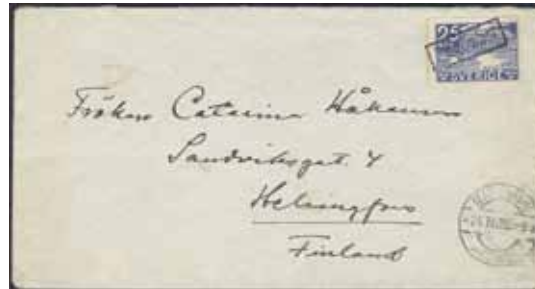 25
SVERIGE
Fröken Catarina Håkansson
Sandviksgat. 4
Helsingfors
Finland